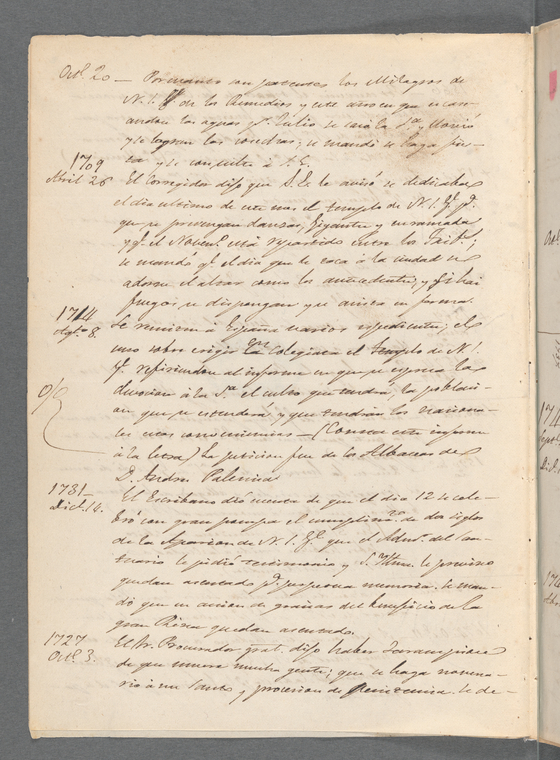 Octe. 20 — Por cuanto son patentes los Milagros de
N. S. de los Remedios y este año en que escasearon
las aguas pr. Julio se sacó la Sa. y llovió
y se logran las siembras; se mandó se haga fiesta
y se consulte á S. E.
1709
Abril 26 El Corregidor dijo que S. E. le avisó se dedicaba
el dia ultimo de este mes el templo de N. S. Ge. pa.
que se prevengan danzas, Gigantes y enramada
y qe. el Noven. está repartido entre los
se mandó qe. el dia que le toca á la ciudad se
adorne el altar como los antecedentes, y si hai
fuegos se dispongan y se avise en forma.
1714
Agto. 8. Se remiten á España varios espedientes; el
uno sobre erigir en Colegiata el templo de N. S.
Ge. refiriendose al informe en que se espresa la
devocion á la Sa. el culto que tendrá, la poblacion
que se estenderá y que tendrán los naturales
esas conveniencias — (Consta este informe
á la letra) La peticion fue de los Albaceas de
D. Andres Palencia
1731—
Dice. 14. El Escribano dió cuenta de que el dia 12 se celebró
con gran pompa el cumplimto. de dos siglos
de la Aparicion de N. S. Ge. que el Admr. del Santuario
le pidió testimonio y S. Yllma. le previno
quedase asentado pa. perpetua memoria. Se mandó
que en accion de gracias del beneficio de la
gran Reina quedase asentado.
1727
Octe. 3. El Sr. Procurador gral. dijo haber Sarampion
de que muere mucha gente; que se haga novenario
á un Santo y procesion de Penitencia. Se de-